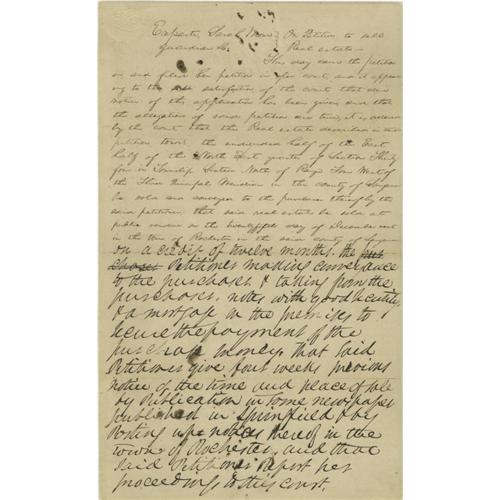 Exparte, Sarah
guardian &c
On Petition to sell
Real estate—
This day came the petition
er and filed her petition in open court, and it appear
ing to the satisfaction of the court that due
notice of this application has been given and that
the allegations of said petition are true, it is ordered
by the court that the Real estate described in this
petition towit the undivided half of the East
half of the North East quarter of Section Thirty
four in Township Sixteen North of Range Four West of
the Third Principal Meridian in the county of Sangamon
be sold and conveyed to the purchaser thereof by the
said petitioner, that said real estate be sold at
public vendue on the day of December next
in the town of Rochester in the said county of Sangamon
on a credit of twelve months. the pur
chaser Petitioner making conveyance
to the purchaser & taking from the
purchaser, notes with good security
& a mortgage on the premises to
secure the payment of the
purchase money, that said
Petitioner give four weeks previous
notice of the time and place of sale
by publication in some newspaper
published in Springfield & by
Posting up notices thereof in the
town of Rochester, and that
said Petitioner report her
proceedings to this court.